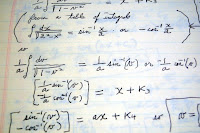 √1-v²
(from a table of integrals
∫ dx/√a²-x² = sin⁻¹ x/a or -cos⁻¹ x/a)
1/a ∫ dv/√1-v² = 1/a sin⁻¹(v) or -1/a cos⁻¹(v)
[1/a sin⁻¹(v) / -1/a cos⁻¹(v)] = x + K₃
[sin⁻¹(v) / -cos⁻¹(v)] = ax + K₄ so v =